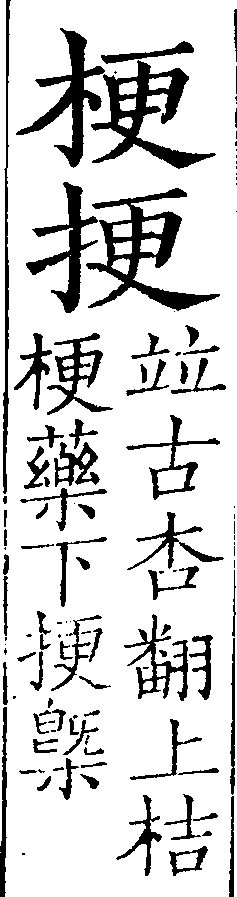 梗挭
竝古杏翻上桔
梗藥下挭槩